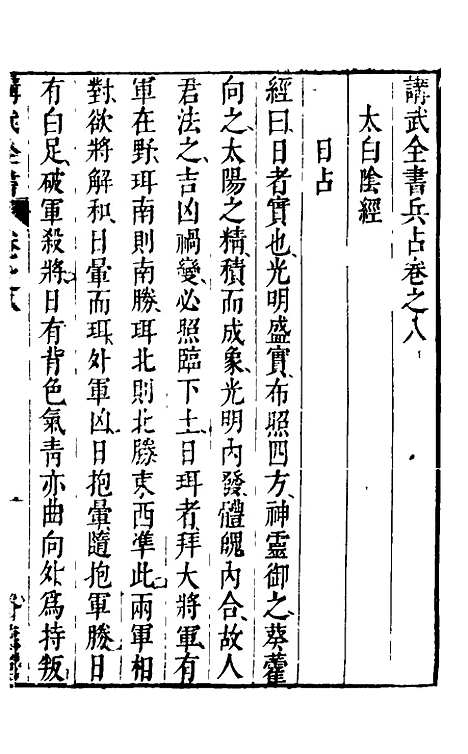 講武全書兵占卷之八
太白陰經
日占
經曰日者實也光明盛實布照四方神靈御之葵藿
向之太陽之精積而成象光明內發體魄內合故人
君法之吉凶禍變必照臨下土日珥者拜大將軍有
軍在野珥南則南勝珥北則北勝東西準此兩軍相
對欲將解和日暈而珥外軍凶日抱暈隨抱軍勝日
有白足破軍殺將日有背色氣青赤曲向外為持叛
講武全書 卷之八 一